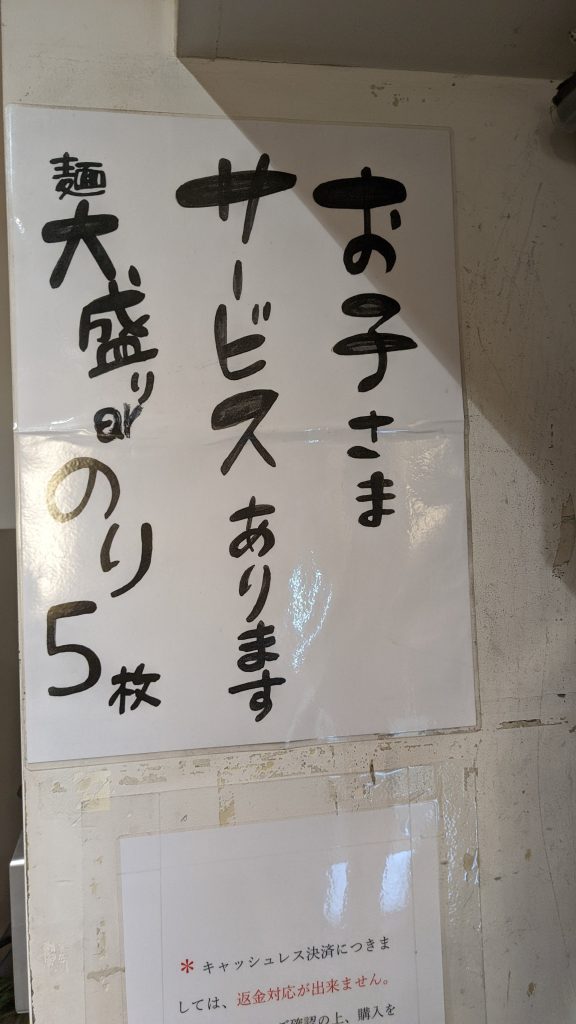 お子さま
サービスあります
麺大盛りor
のり5枚
＊キャッシュレス決済につきま
しては、返金対応が出来ません。
ご確認の上、購入を